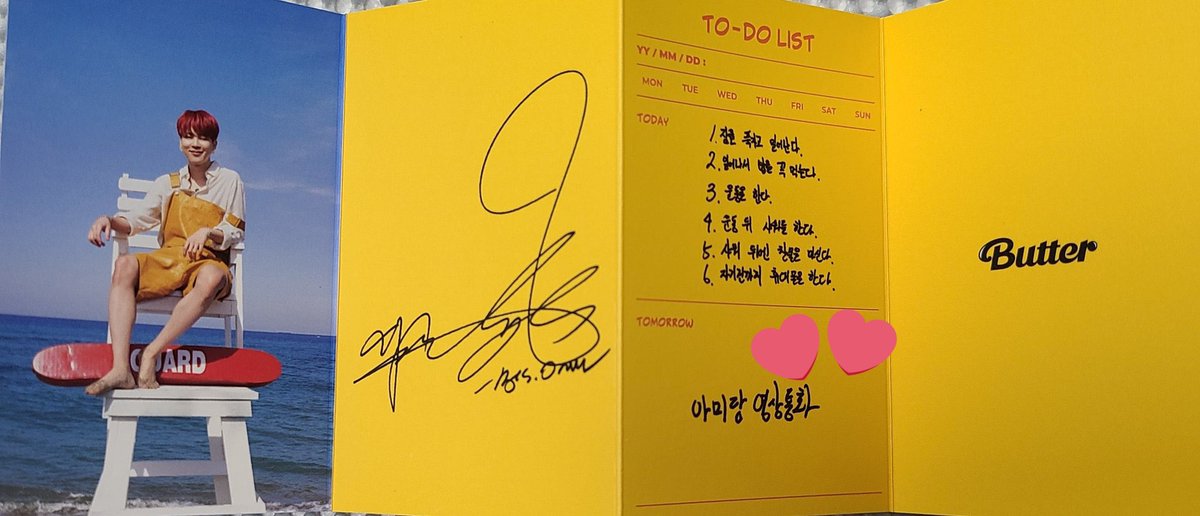 GUARD
TO-DO LIST
YY / MM / DD :
MON TUE WED THU FRI SAT SUN
TODAY
1. 잠을 푹자고 일어난다.
2. 일어나서 밥을 꼭 먹는다.
3. 운동을 한다.
4. 운동 뒤 샤워를 한다.
5. 샤워 뒤엔 찬물을 마신다.
6. 자기전까지 휴대폰을 한다.
TOMORROW
아미랑 영상통화
Butter